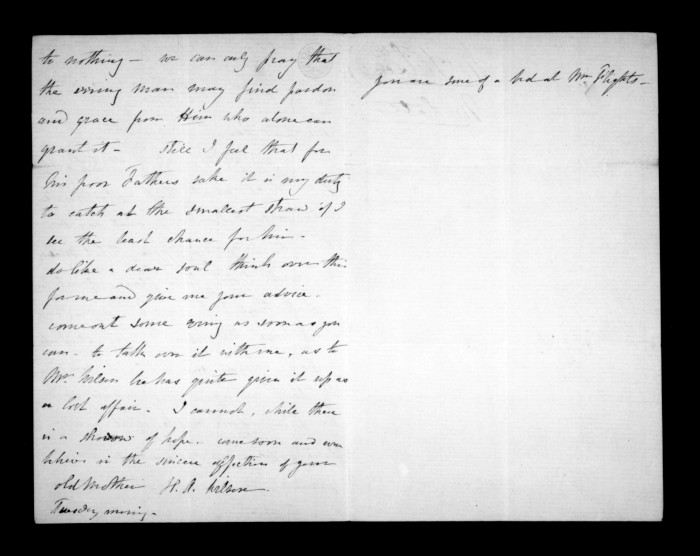 to nothing – we can only pray that
the erring man may find pardon
and grace from Him who alone can
grant it – still I feel that for
his poor Fathers sake it is my duty
to catch at the smallest straw if I
see the least chance for him –
do like a dear soul think over this
for me and give me your advice –
come out some evng as soon as you
can – to talk over it with me, as to
Mr. Wilson he has quite given it up as
a lost affair – I cannot, while there
is a shadow of hope – come soon and ever
believe in the sincere affection of your
old Mother H. A. Wilson
Tuesday morning –
you are sure of a bed at Flights –